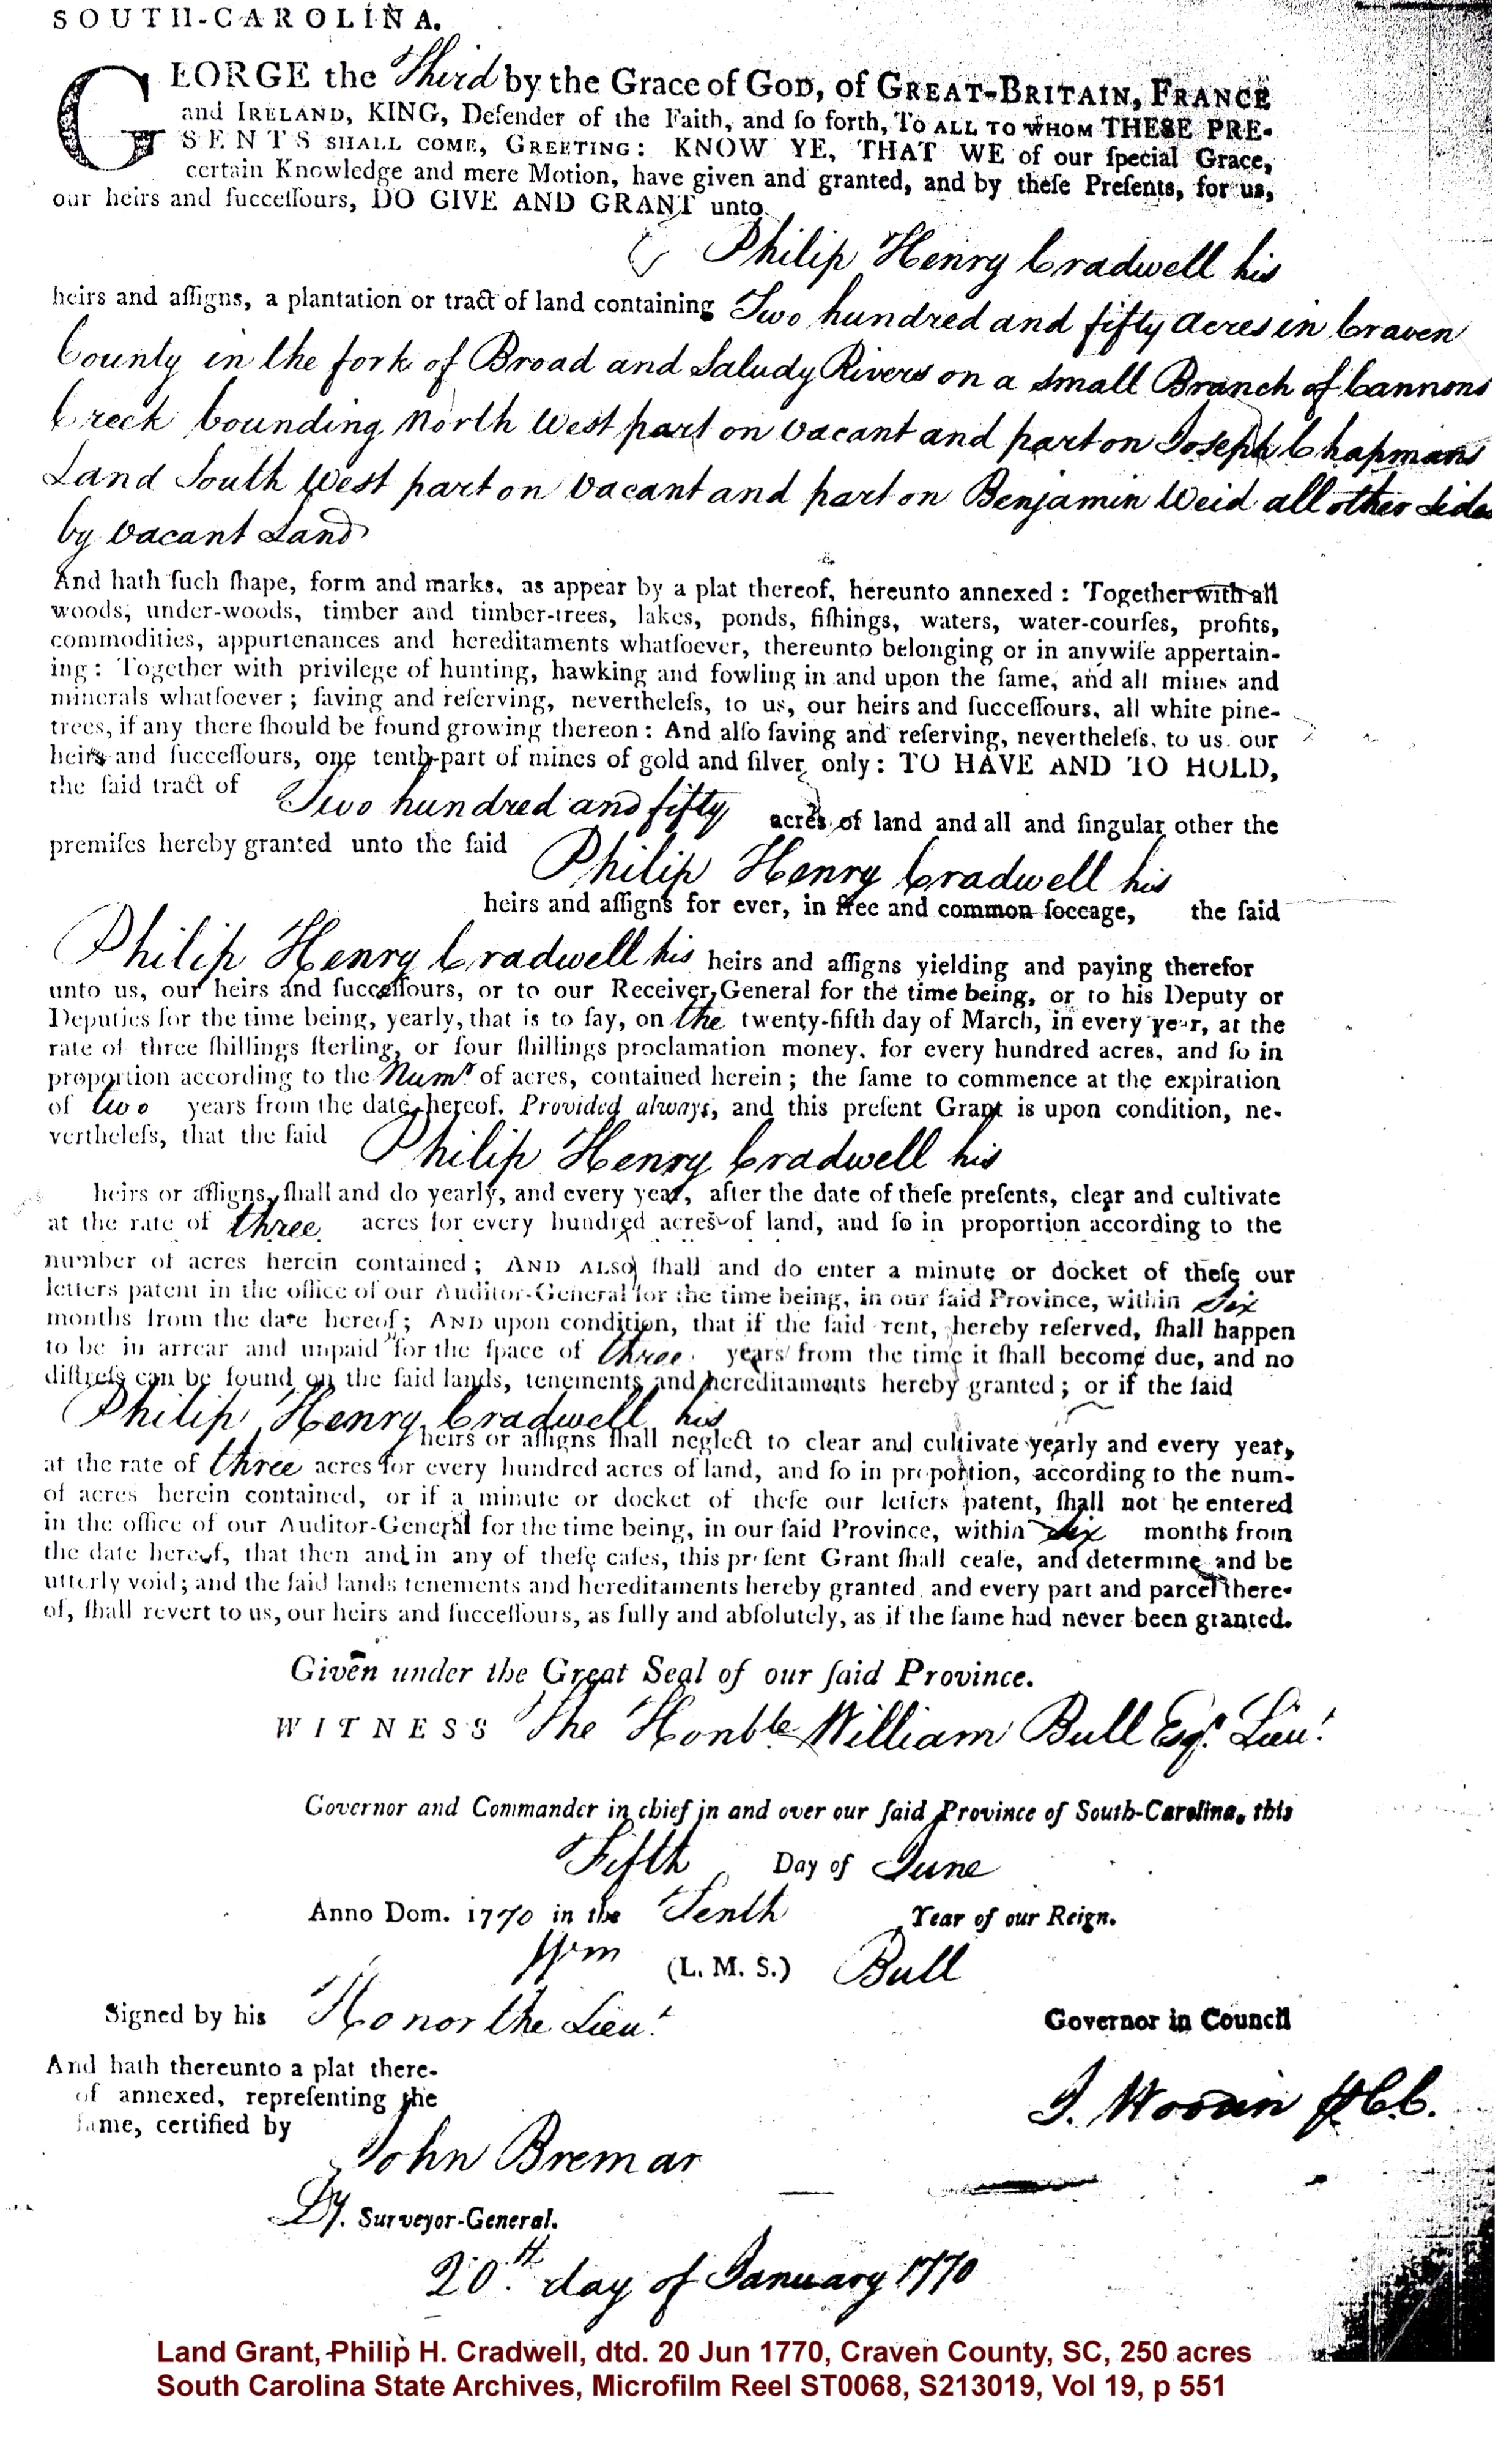 SOUTH-CAROLINA.
GEORGE the Third by the Grace of GOD, of GREAT-BRITAIN, FRANCE
and IRELAND, KING, Defender of the Faith, and ſo forth, TO ALL TO WHOM THESE PRE-
SENTS SHALL COME, GREETING: KNOW YE, THAT WE of our ſpecial Grace,
certain Knowledge and mere Motion, have given and granted, and by theſe Preſents, for us,
our heirs and ſucceſſours, DO GIVE AND GRANT unto
Philip Henry Cradwell his
heirs and aſſigns, a plantation or tract of land containing Two hundred and fifty Acres in Craven
County in the fork of Broad and Saludy Rivers on a Small Branch of Cannons
Creek bounding North West part on vacant and part on Joseph Chapmans
Land South West part on vacant and part on Benjamin Weid all other Sides
by vacant Land
And hath ſuch ſhape, form and marks, as appear by a plat thereof, hereunto annexed: Together with all
woods, under-woods, timber and timber-trees, lakes, ponds, fiſhings, waters, water-courſes, profits,
commodities, appurtenances and hereditaments whatſoever, thereunto belonging or in anywiſe appertain-
ing: Together with privilege of hunting, hawking and fowling in and upon the ſame, and all mines and
minerals whatſoever; ſaving and reſerving, nevertheleſs, to us, our heirs and ſucceſſours, all white pine-
trees, if any there ſhould be found growing thereon: And alſo ſaving and reſerving, nevertheleſs, to us, our
heirs and ſucceſſours, one tenth-part of mines of gold and ſilver only: TO HAVE AND TO HOLD,
the ſaid tract of Two hundred and fifty acres of land and all and ſingular other the
premiſes hereby granted unto the ſaid Philip Henry Cradwell his
heirs and aſſigns for ever, in free and common ſoccage, the ſaid
Philip Henry Cradwell his heirs and aſſigns yielding and paying therefor
unto us, our heirs and ſucceſſours, or to our Receiver General for the time being, or to his Deputy or
Deputies for the time being, yearly, that is to ſay, on the twenty-fifth day of March, in every year, at the
rate of three ſhillings ſterling, or four ſhillings proclamation money, for every hundred acres, and ſo in
proportion according to the Numr of acres, contained herein; the ſame to commence at the expiration
of two years from the date hereof. Provided always, and this preſent Grant is upon condition, ne-
vertheleſs, that the ſaid Philip Henry Cradwell his
heirs or aſſigns, ſhall and do yearly, and every year, after the date of theſe preſents, clear and cultivate
at the rate of three acres for every hundred acres of land, and ſo in proportion according to the
number of acres herein contained; AND ALSO ſhall and do enter a minute or docket of theſe our
letters patent in the office of our Auditor-General for the time being, in our ſaid Province, within Six
months from the date hereof; AND upon condition, that if the ſaid rent, hereby reſerved, ſhall happen
to be in arrear and unpaid for the ſpace of three years from the time it ſhall become due, and no
diſtreſs can be found on the ſaid lands, tenements and hereditaments hereby granted; or if the ſaid
Philip Henry Cradwell his
heirs or aſſigns ſhall neglect to clear and cultivate yearly and every year,
at the rate of three acres for every hundred acres of land, and ſo in proportion, according to the num-
of acres herein contained, or if a minute or docket of theſe our letters patent, ſhall not be entered
in the office of our Auditor-General for the time being, in our ſaid Province, within Six months from
the date hereof, that then and in any of theſe caſes, this preſent Grant ſhall ceaſe, and determine and be
utterly void; and the ſaid lands tenements and hereditaments hereby granted and every part and parcel there-
of, ſhall revert to us, our heirs and ſucceſſours, as fully and abſolutely, as if the ſame had never been granted.
Given under the Great Seal of our ſaid Province.
WITNESS The Honble William Bull Esqr. Lieut
Governor and Commander in chief in and over our ſaid Province of South-Carolina, this
Fifth Day of June
Anno Dom. 1770 in the Tenth Year of our Reign.
Wm (L. M. S.) Bull
Signed by his Honor the Lieut Governor in Council
And hath thereunto a plat there-
of annexed, repreſenting the
ſame, certified by
John Bremar
Dy. Surveyor-General.
20th day of January 1770
Land Grant, Philip H. Cradwell, dtd. 20 Jun 1770, Craven County, SC, 250 acres
South Carolina State Archives, Microfilm Reel ST0068, S213019, Vol 19, p 551